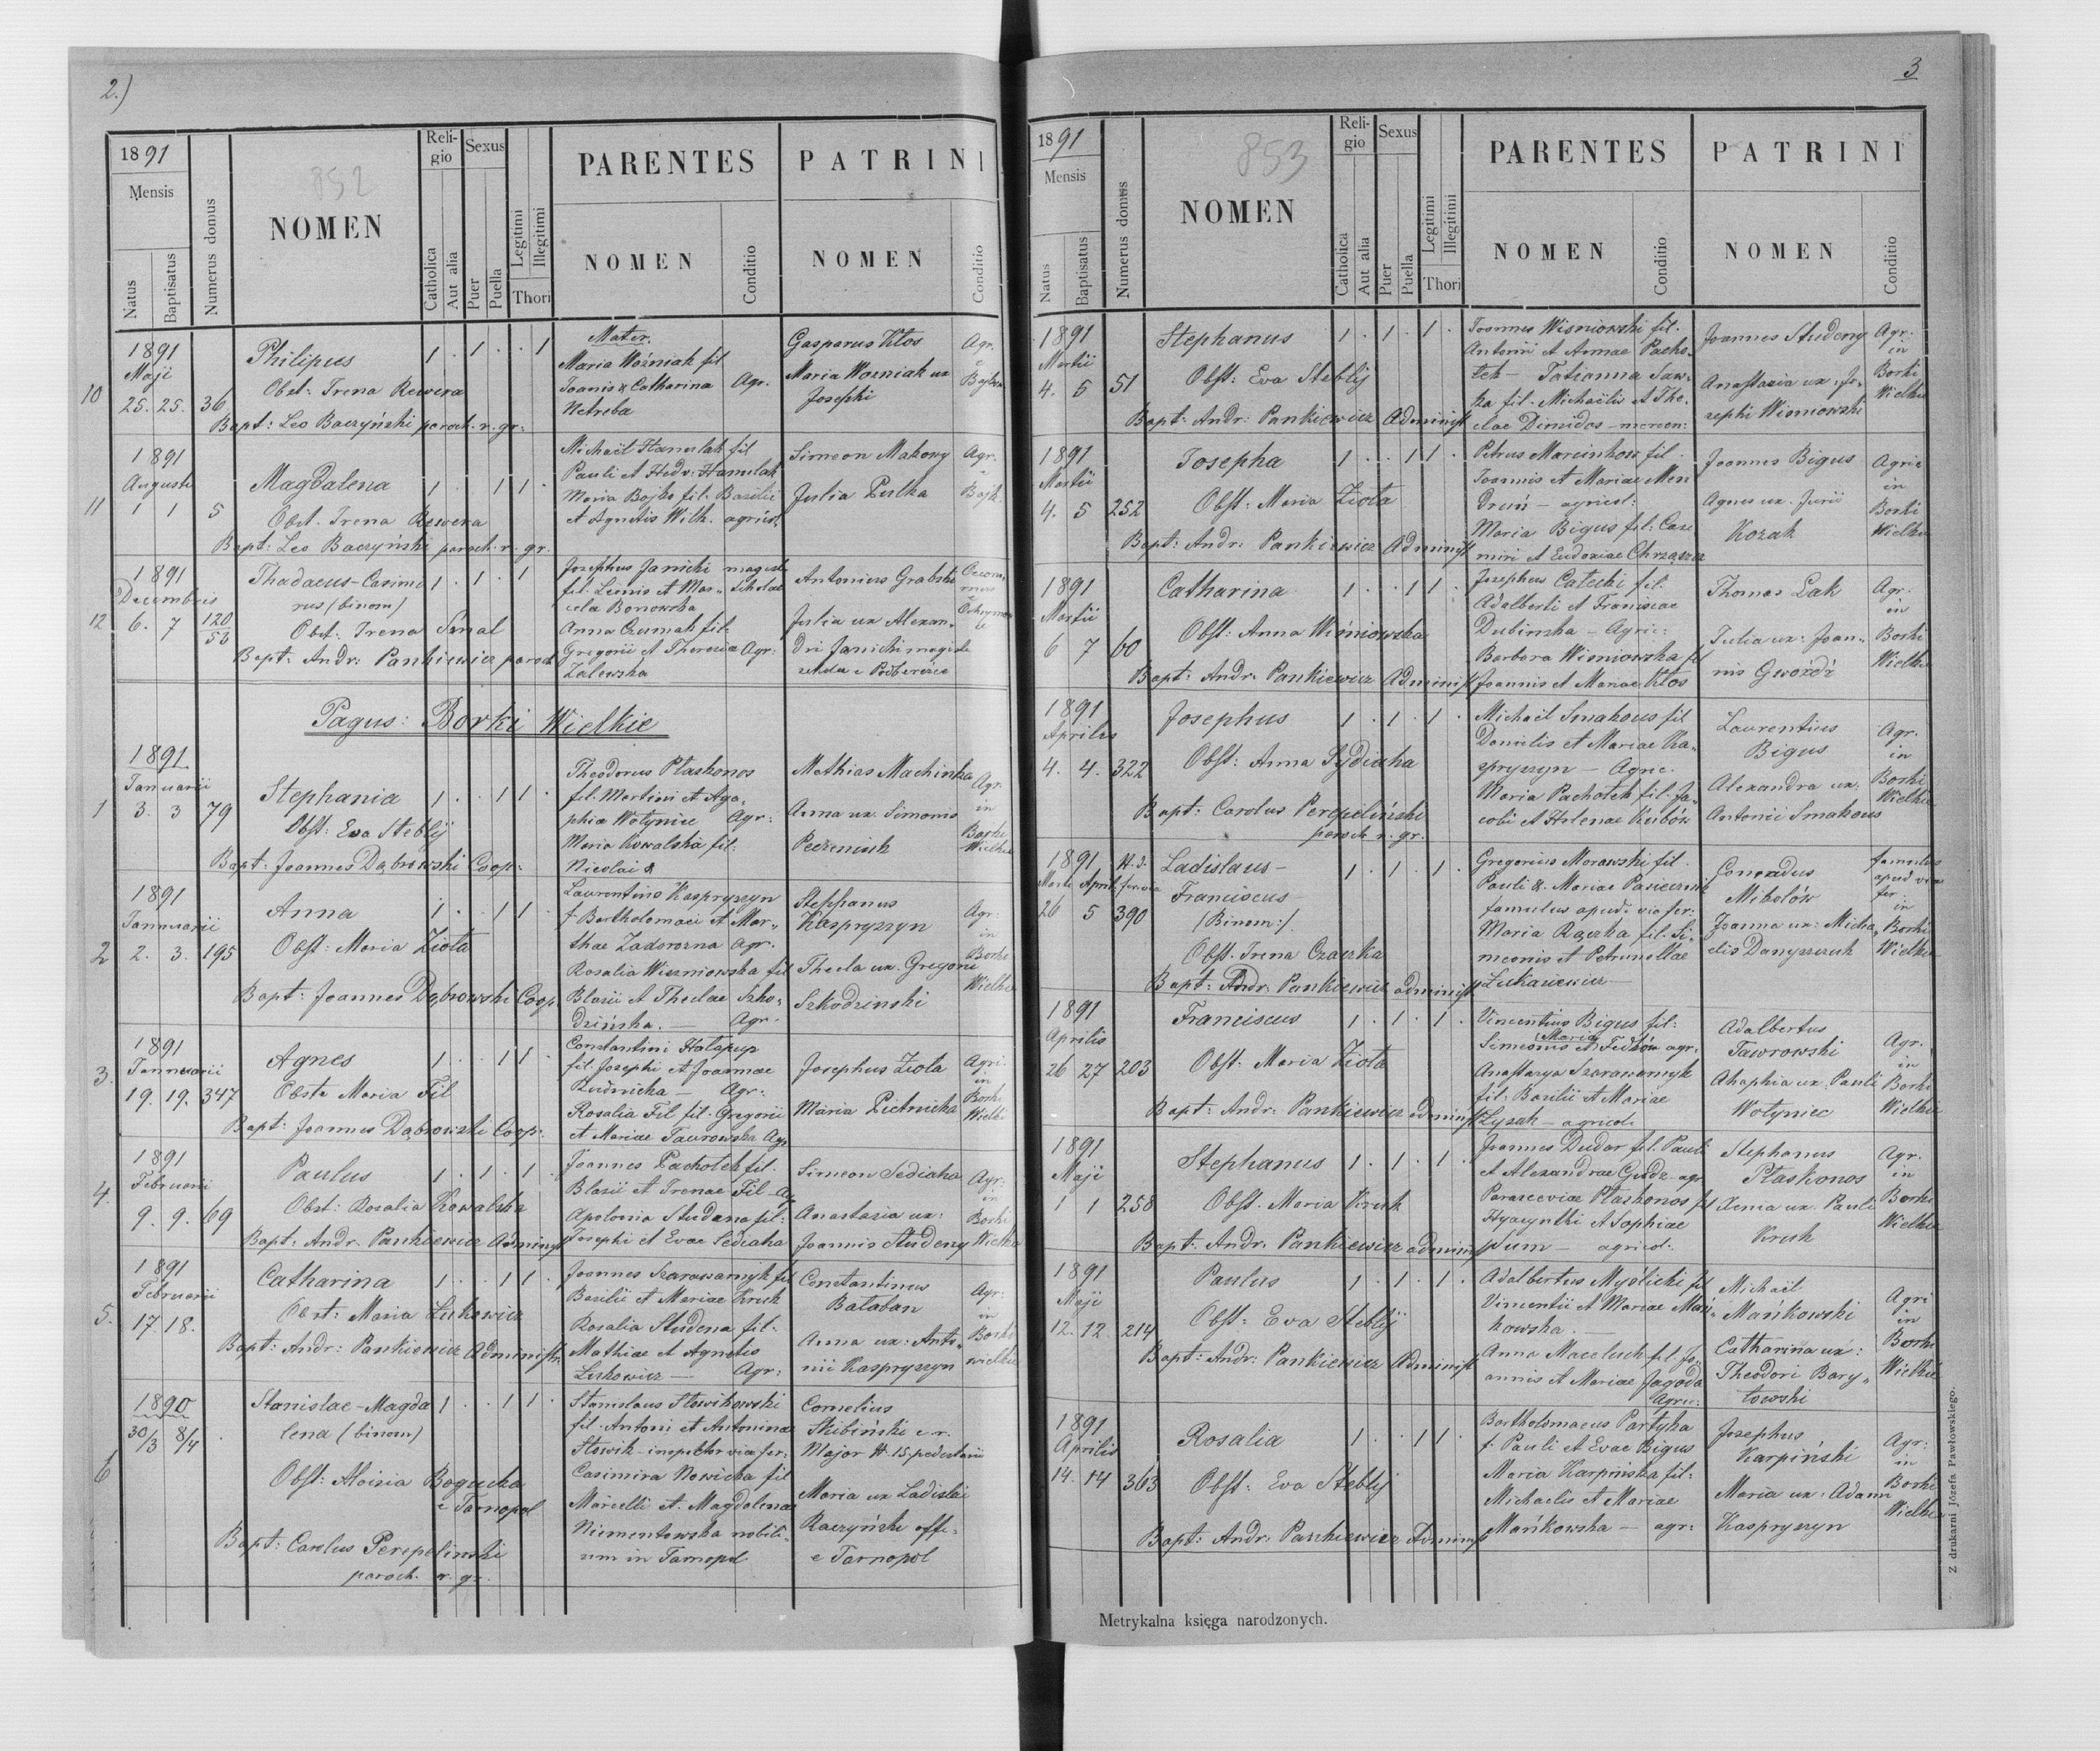 2.)
1891
Mensis
Natus
Baptisatus
Numerus domus
852
NOMEN
Reli-
gio
Catholica
Aut alia
Sexus
Puer
Puella
Legitimi
Illegitimi
Thori
PARENTES
NOMEN
Conditio
PATRINI
NOMEN
Conditio
10
1891
Maji
25. 25. 36
Philipus
Obst: Irena Rewera
Bapt: Leo Baczyński paroch. r. gr.
1 . 1 . . 1
Mater.
Maria Woźniak fil
Joanis & Catharina Agr.
Netreba
Gasparus Kłos
Maria Wozniak ux
Josephi
Agr.
11
1891
Augusti
1 1 5
Magdalena
Obst. Irena Rewera
Bapt: Leo Baczyński paroch. r. gr.
1 . . 1 1 .
Michaël Hamulak fil
Pauli et Hedv. Hamulak
Maria Bojko fil. Basilii
et Agnetis Wilk. agricol.
Simeon Makony
Julia Pulka
Agr.
12
1891
Decembris
6. 7 120/52
Thadaeus-Casimi
rus (binom)
Obst: Irena Smal
Bapt: Andr: Pankiewicz paroch
1 . 1 . 1
Josephus Janicki magist
fil. Scholae
Bonowska
Anna Czumak fil.
Gregorii et Theresia Agr:
Zalewska
Antonius Grabski
Julia ux Alexan-
dri Janicki magist
Pagus: Borki Wielkie
1
1891
Januarii
3. 3 79
Stephania
Obst: Eva Steblij
Bapt: Joannes Dąbrowski Coop:
1 . . 1 1 .
Theodorus Ptaskonos
fil. Martini et Aga-
phia Wołyniec Agr:
Maria Kowalska fil:
Nicolai &
Mathias Machinka
Anna ux. Simonis
Peczeniuk
Agr.
in
Borki
Wielkie
2
1891
Januarii
2. 3. 195
Anna
Obst: Maria Zioła
Bapt: Joannes Dąbrowski Coop.
1 . . 1 1 .
Laurentius Kaspryszyn
f. Bartholomaei et Mar-
thae Zadorozna Agr.
Rosalia Wiszniowska fil
Blasii et Theclae Szko-
dzińska. — Agr.
Stephanus
Kaspryszyn
Thecla ux. Gregorii
Szkodzinski
Agr.
in
Borki
Wielkie
3.
1891
Januarii
19. 19. 347
Agnes
Obst: Maria Fil
Bapt: Joannes Dąbrowski Coop.
1 . . 1 1 .
Constantini Hałapup
fil. Josephi et Joannae
Ludwicka — Agr:
Rosalia Fil fil. Gregorii
et Mariae Taurowska Agr
Josephus Zioła
Maria Pietnicka
Agri.
in
Borki
Wielkie
4.
1891
Februarii
9. 9. 69
Paulus
Obst: Rosalia Kowalska
Bapt: Andr. Pankiewicz Administ
1 . 1 . 1 .
Joannes Pachołek fil.
Blasii et Irenae Fil — Ag
Apolonia Studena fil:
Josephi et Evae Sediaha
Simeon Sediaha
Anastazia ux:
Joannis Studeny
Agr:
in
Borki
Wielkie
5.
1891
Februarii
17. 18.
Catharina
Obst: Maria Lukowicz
Bapt: Andr: Pankiewicz Administr.
1 . . 1 1 .
Joannes Szarawarnyk fil
Basilii et Mariae Kruk
Rosalia Studena fil:
Mathiae et Agnetis
Leskowicz — Agr:
Constantinus
Bałaban
Anna ux: Anto-
nii Kaspryszyn
Agr:
in
Borki
wielkie
6
1890
30/3 8/4
Stanislae-Magda
lena (binom)
Obst: Aloisia Bogucka
e Tarnopol
Bapt: Carolus Perepelinski
paroch. r. gr.
1 . . 1 1 .
Stanislaus Słowikowski
fil. Antoni et Antoninae
Słowik — inspector via fer:
Casimira Nowicka fil
Marcelli et Magdalenae
Niementowska nobili-
um in Tarnopol
Cornelius
Skibiński c. r.
Major N. 15 pedestarii
Maria ux Ladislai
Raczyński offi-
e Tarnopol
3
1891
Mensis
Natus
Baptisatus
Numerus domus
853
NOMEN
Reli-
gio
Catholica
Aut alia
Sexus
Puer
Puella
Legitimi
Illegitimi
Thori
PARENTES
NOMEN
Conditio
PATRINI
NOMEN
Conditio
1891
Martii
4. 5 51
Stephanus
Obst: Eva Steblij
Bapt: Andr: Pankiewicz Administ
1 . 1 . 1 .
Joannes Wisniowski fil.
Antonii et Annae Pacho-
łek — Tatianna Saw-
ka fil. Michaëlis et The-
clae Dimidos — mercen:
Joannes Studeny
Anastazia ux: Jo-
sephi Wisniowski
Agr.
in
Borki
Wielkie
1891
Martii
4. 5 252
Josepha
Obst: Maria Zioła
Bapt: Andr: Pankiewicz Administ
1 . . 1 1 .
Petrus Marcinkow fil.
Joannis et Mariae Men
Druń — agricol:
Maria Bigus fil: Casi
miri et Eudoxiae Chrząszcz
Joannes Bigus
Agnes ux. Jurii
Kozak
Agric
in
Borki
Wielkie
1891
Martii
6 7 60
Catharina
Obst: Anna Wiśniowska
Bapt: Andr. Pankiewicz Administ
1 . . 1 1 .
Josephus Całecki fil:
Adalberti et Franciscae
Dubinska — Agric:
Barbara Wisniowska fil
Joannis et Mariae Kłos
Thomas Łak
Julia ux: Joan-
nis Gwoźdź
Agr.
in
Borki
Wielkie
1891
Aprilis
4. 4. 322
Josephus
Obst: Anna Sydiaha
Bapt: Carolus Perepeliński
paroch r. gr.
1 . 1 . 1 .
Michaël Smakous fil
Danielis et Mariae Ka-
spryszyn — Agric.
Maria Pachołek fil. Ja-
cobi et Helenae Kubów
Laurentius
Bigus
Alexandra ux:
Antonii Smakous
Agr.
in
Borki
Wielkie
1891
Martii April.
26 5 390
Ladislaus-
Franciscus
(Binom:)
Obst. Irena Czaczka
Bapt: Andr: Pankiewicz administ
1 . 1 . 1 .
Gregorius Morawski fil.
Pauli & Mariae
famulus apud. via fer:
Maria Rączka fil. Si-
meonis et Petrunellae
Łukasiewicz —
Conradus
Mikołów
Joanna ux: Micha-
elis Danyszczuk
famulus
apud via
fer.
in
Borki
Wielkie
1891
Aprilis
26 27 203
Franciscus
Obst: Maria Zioła
Bapt: Andr: Pankiewicz administ
1 . 1 . 1 .
Vincentius Bigus fil:
Maria
Simeonis et Fedków agr.
Anastazya Szarawarnyk
fil: Basilii et Mariae
Łysak — agricol.
Adalbertus
Tawrowski
Ahaphia ux. Pauli
Wołyniec
Agr.
in
Borki
Wielkie
1891
Maji
1 1 258
Stephanus
Obst. Maria Kruk
Bapt: Andr: Pankiewicz administ
1 . 1 . 1 .
Joannes Dudar fil. Pauli
et Alexandrae Gudz — agr
Parasceviae Ptaskonos fil
Hyacynthi et Sophiae
Dum — agricol:
Stephanus
Ptaskonos
Xenia ux. Pauli
Kruk
Agr.
in
Borki
Wielkie
1891
Maji
12. 12. 214
Paulus
Obst: Eva Steblij
Bapt: Andr: Pankiewicz Administ
1 . 1 . 1 .
Adalbertus Myślicki fil
Vincentii et Mariae Mań-
kowska. —
Anna Maceluch fil. Jo-
annis et Mariae Jagoda
Agric:
Michaël
Mańkowski
Catharina ux:
Theodori Bary-
łowski
Agri
in
Borki
Wielkie
1891
Aprilis
14. 14 363
Rosalia
Obst: Eva Steblij
Bapt: Andr: Pankiewicz Administ
1 . . 1 1 .
Bartholomaeus Partyka
f. Pauli et Evae Bigus
Maria Karpińska fil:
Michaelis et Mariae
Mańkowska — agr:
Josephus
Karpiński
Maria ux. Adami
Kaspryszyn
Agr:
in
Borki
Wielkie
Metrykalna księga narodzonych.
Z drukarni Józefa Pawłowskiego.